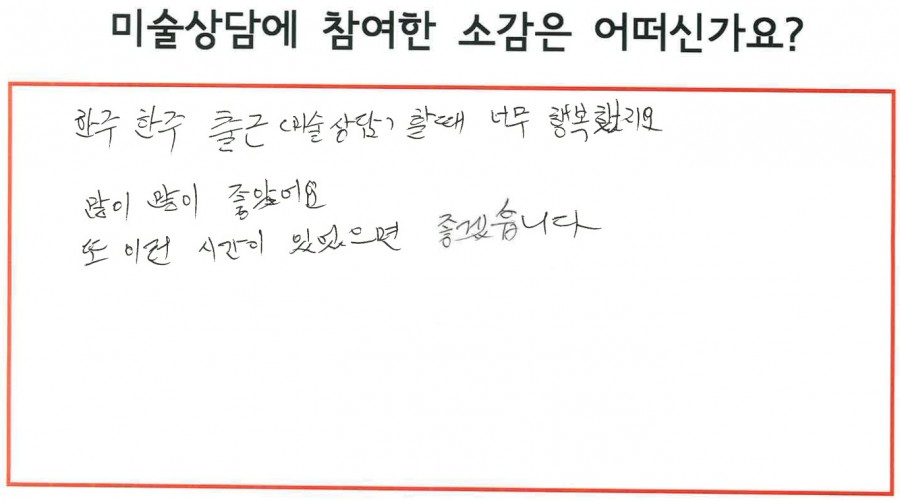 미술상담에 참여한 소감은 어떠신가요?
한주 한주 출근 (미술상담) 할때 너무 행복했지요
많이 많이 좋았어요
또 이런 시간이 있었으면 좋겠습니다